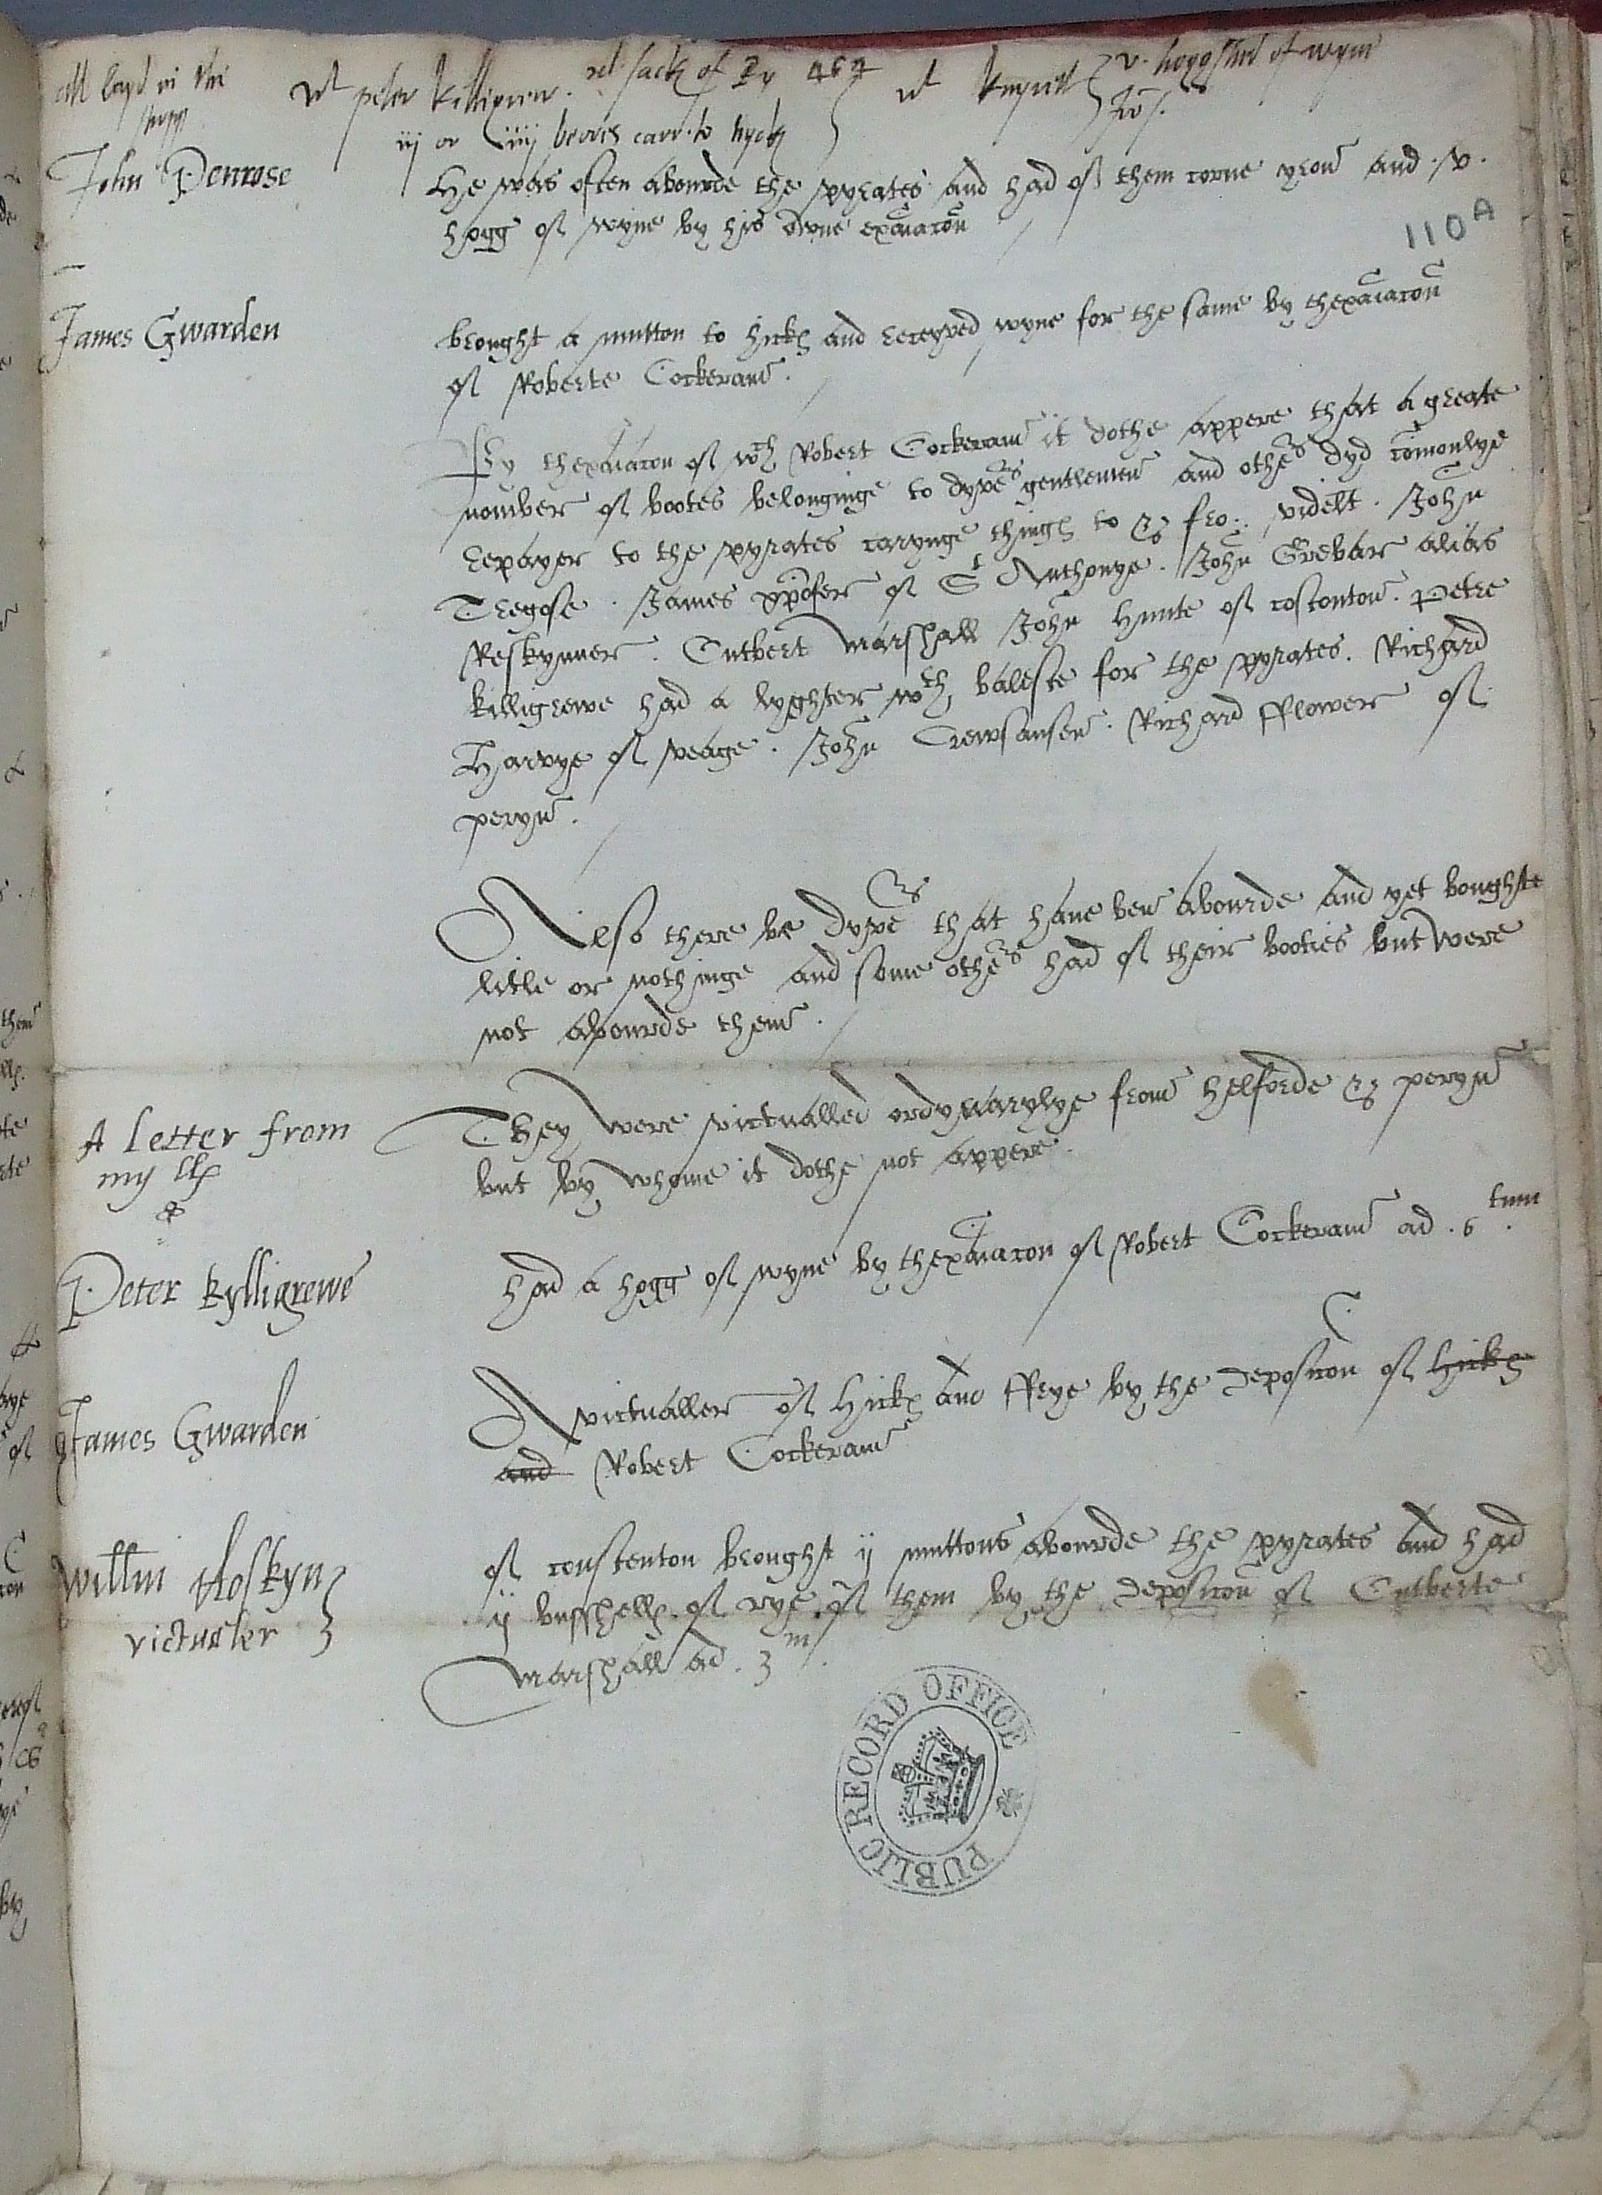 all layd in the
peter killigrew . sack of Ry
v. hoggshed of wyne
iij or iiij beoves carr. to hyck
John Penrose
He was often abourde the pyrates and had of them corne yron and .v.
hogg of wyne by his owne exaiacon
110 A
James Gwarden
brought a mutton to Hick and receyved wyne for the same by thexaiacon
of Roberte Cockeram .
By thexaiacon of wch Robert Cockeram it dothe appere that a greate
nomber of bootes belonginge to dyvers gentlemen and others dyd comonlye
repayer to the pyrates carynge things to & fro : videlt . John
Tregose . James xpofer of St Anthonye . John Grebar alias
Reskymer . Cutbert Marshall John Hunte of costonton . Petre
killigrewe had a lyghter wth baleste for the pyrates . Richard
Harvye of veage . John Trewsansen . Richard fflower of
peryn .
Also there be dyvers that have ben abourde and yet boughte
litle or nothinge and some others had of their booties but were
not abourde them .
A letter from
my
They were victualled ordynarylye from helforde & peryn
but by whome it dothe not appere .
Peter kylligrewe
had a hogg of wyne by thexaiacon of Robert Cockeram ad . 6 tum
James Gwarden
A victualler of Hick and ffrye by the deposicon of Hick
and Robert Cockeram
Willm Hoskyn
victualer
of constenton brought ij muttons abourde the pyrates and had
ij busshells of rye of them by the deposicon of Cutberte
Marshall ad . 3 m .
PUBLIC RECORD OFFICE